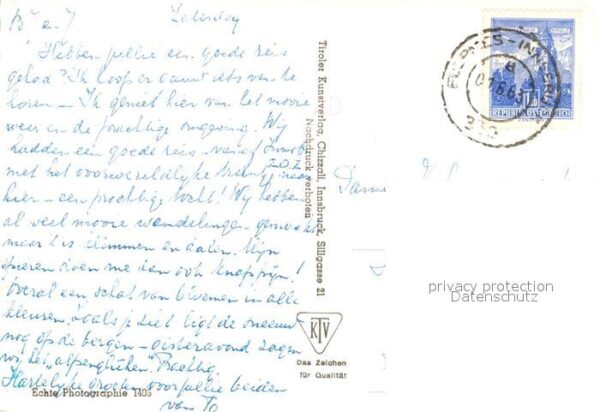 Zaterdag
Hebben jullie een goede reis
gehad? Ik hoop er gauw iets van te
horen – Ik geniet hier van het mooie
weer en de prachtige omgeving. Wij
hadden een goede reis – vanaf
met het voorwereldlijke treintje naar
hier – een prachtige tocht! Wij hebben
al veel mooie wandelingen gemaakt
maar 't is klimmen en dalen. Mijn
spieren doen me dan ook knap pijn!
Overal een schat van bloemen in alle
kleuren. Zoals je ziet ligt de sneeuw
nog op de bergen – gisteravond zagen
wij het "alpenglühen". Prachtig.
Hartelijke groeten voor jullie beiden
van To
Echte Photographie 1403
Tiroler Kunstverlag, Chizzali, Innsbruck, Sillgasse 21
Nachdruck verboten
KTV
Das Zeichen
für Qualität
FULPMES-INNSBRUCK
REPUBLIK ÖSTERREICH
privacy protection
Datenschutz